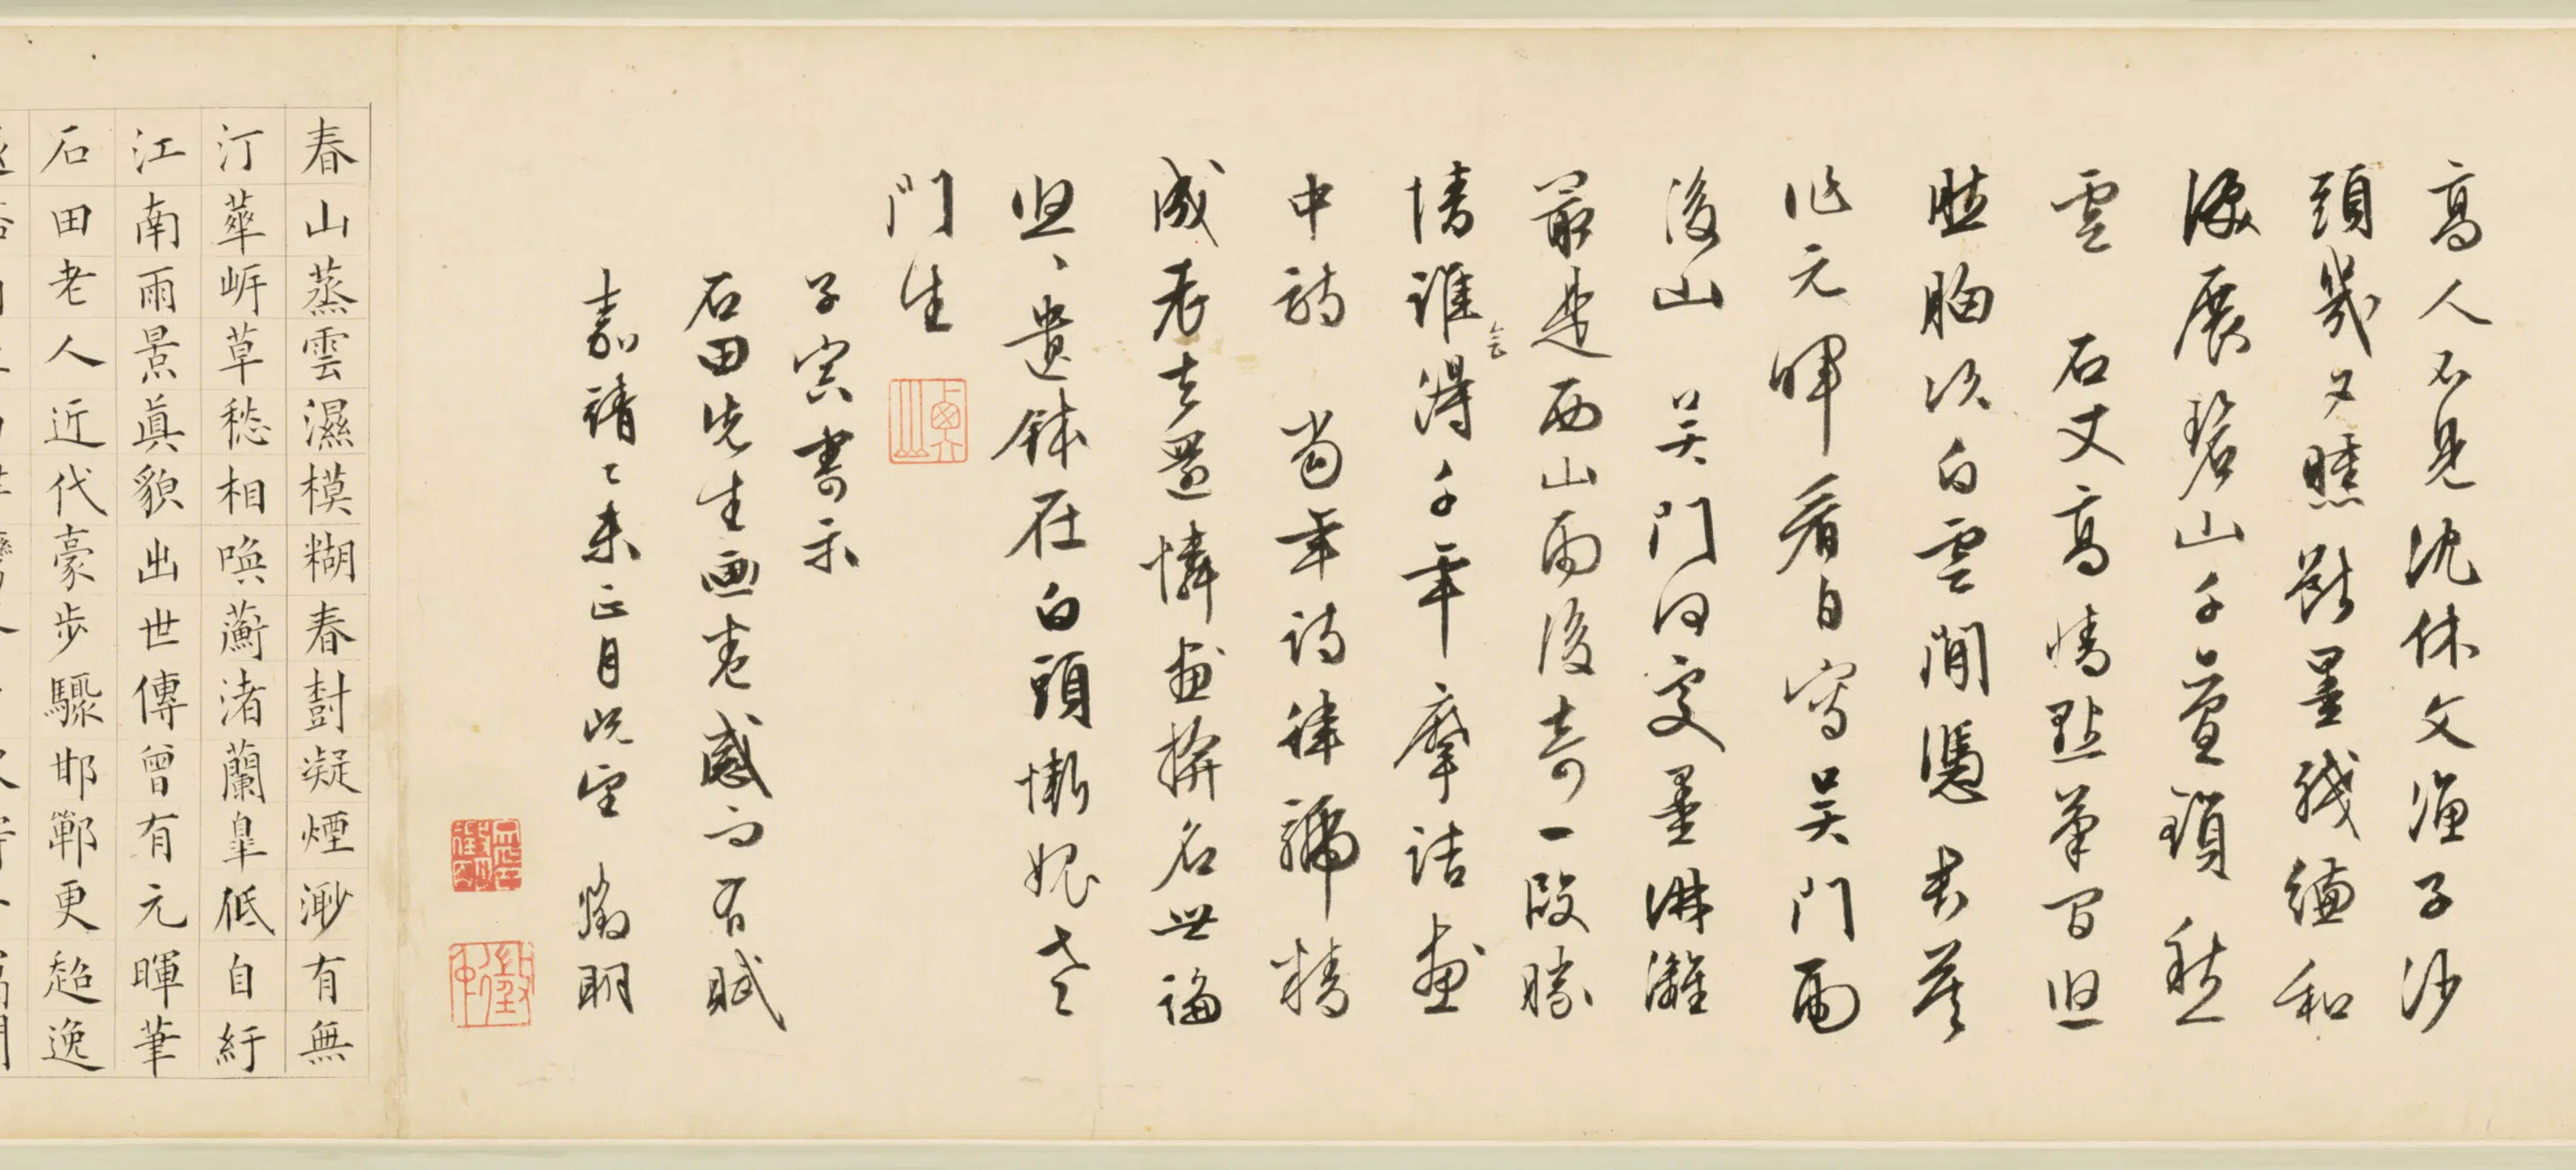 高人不見沈休文漁子沙
頭幾夕曛斷墨殘縑和
淚展碧山千疊鎖愁
雲　石丈高情點筆間思
然胸次白雲閒憑君莫
作元暉看自寫吳門雨
後山　吳門何處墨淋漓
最是西山雨後奇一段勝
情誰會得千年摩詰畫
中詩　當年詩律號精
成老去還憐畫掩名世論
悠悠遺鉢在白頭慚媿老
門生
子寅書示
石田先生画卷感而有賦
嘉靖乙未正月既望　徵明
春山蒸雲濕模糊春樹凝煙渺有無
汀蘋岸草愁相喚蘅渚蘭皐低自紆
江南雨景真貌出世傳曾有元暉筆
石田老人近代豪步驟邯鄲更超逸